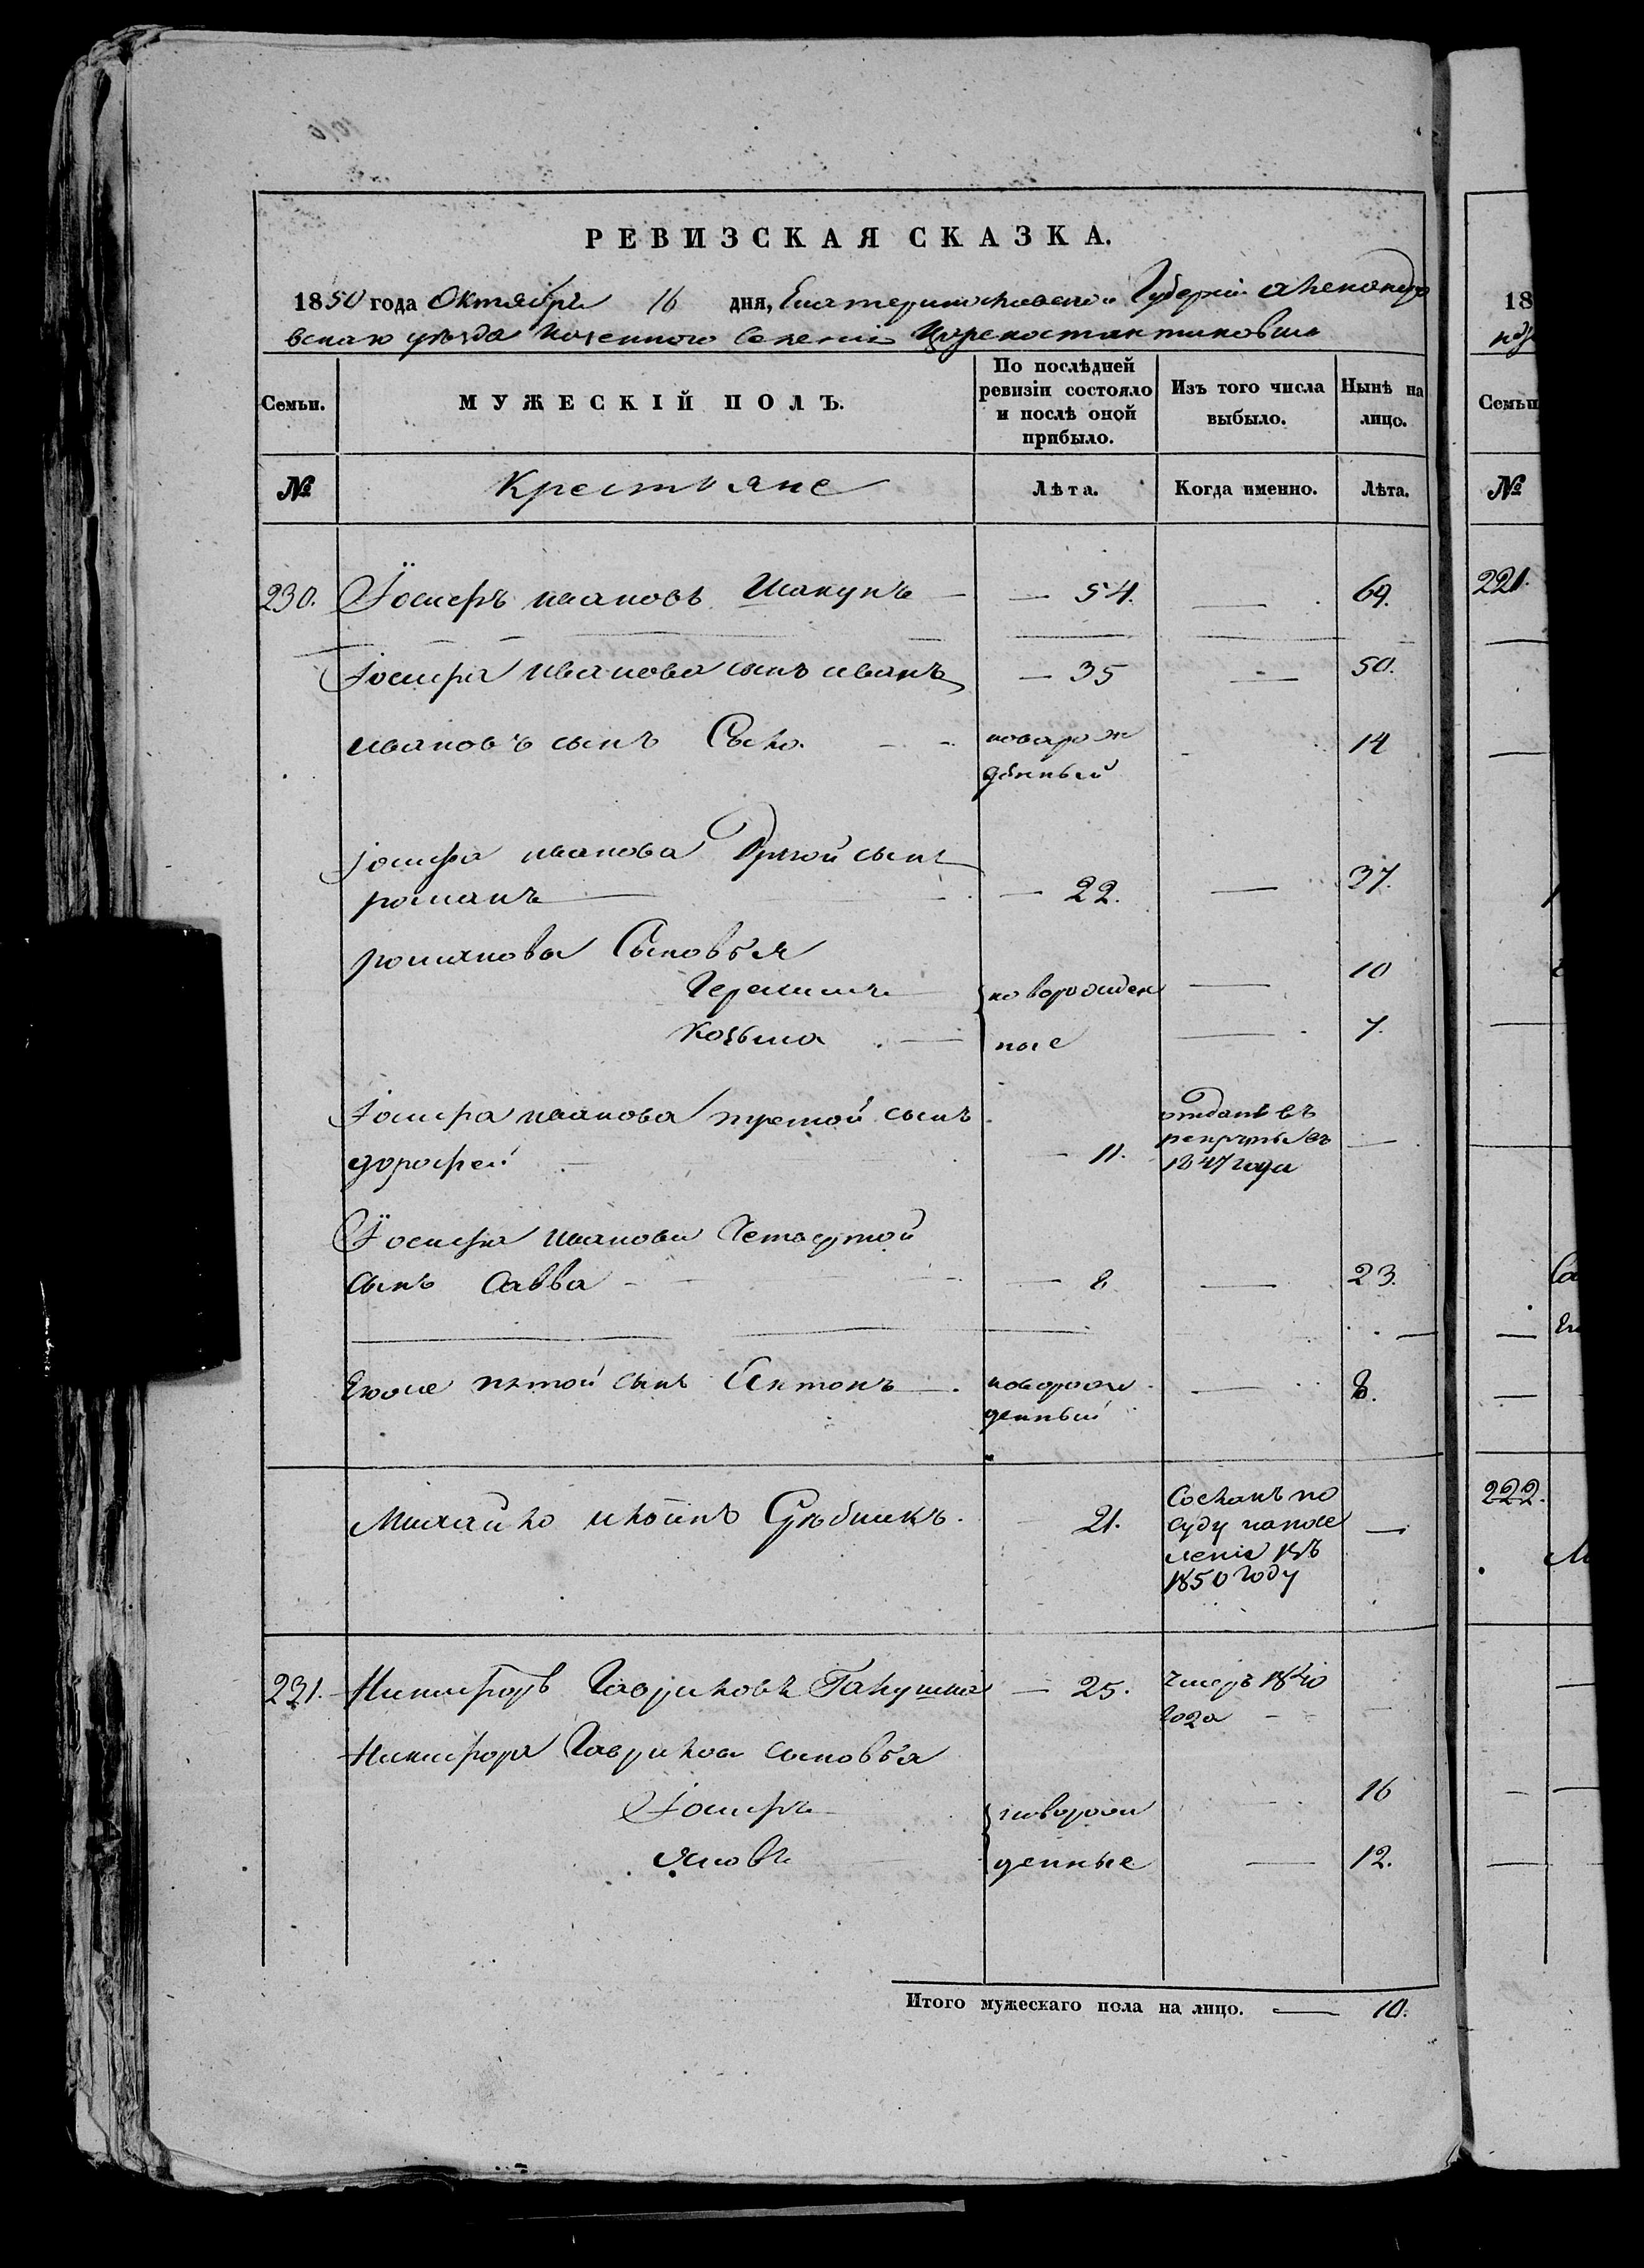 РЕВИЗСКАЯ СКАЗКА.
1850 года Октября 16 дня, Екатеринославской Губерніи Александро
вскаго уѣзда казенного Селенія Цареконстантиновки
Семьи.
МУЖЕСКІЙ ПОЛЪ.
По послѣдней
ревизіи состояло
и послѣ оной
прибыло.
Изъ того числа
выбыло.
Нынѣ на
лицо.
№
Крестьяне
Лѣта.
Когда именно.
Лѣта.
230. Іосифъ ивановъ — 54. — 69.
Іосифа иванова сынъ иванъ — 35 — 50.
ивановъ сынъ новорож 14
денный
іосифа иванова Другой сынъ
романъ — 22. — 37.
романовы Сыновья
Герасимъ новорожден — 10
Козьма ные — 7.
Іосифа иванова третой сынъ отданъ въ
дорофей — 11. рекруты въ —
1847 годи
Іосифа иванова Четвертой
сынъ Савва — 8 — 23.
Егоже пятой сынъ Антонъ — новорож — 8.
денный
Михайло 21. Сосланъ по
суду напосе —
леніе въ
1850 году
231. Никифоръ Гавриловъ — 25. умеръ 1840
года —
Никифора Гаврилова сыновья
Іосифъ новорож 16
яковъ денные — 12.
Итого мужескаго пола на лицо. — 10.
18
Семьи
№
221.
222.